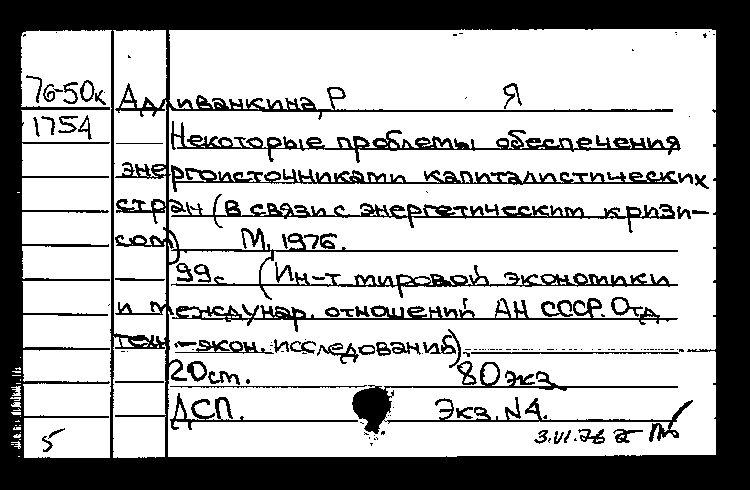 76-50к Адливанкина, Р Я
1754 Некоторые проблемы обеспечения
энергоисточниками капиталистических
стран (в связи с энергетическим кризи-
сом). М, 1976.
99с. (Ин-т мировой экономики
и междунар. отношений АН СССР. Отд.
техн.-экон. исследований).
20 ст. 80 экз
ДСП. Экз. N4.
5 3.VI.76